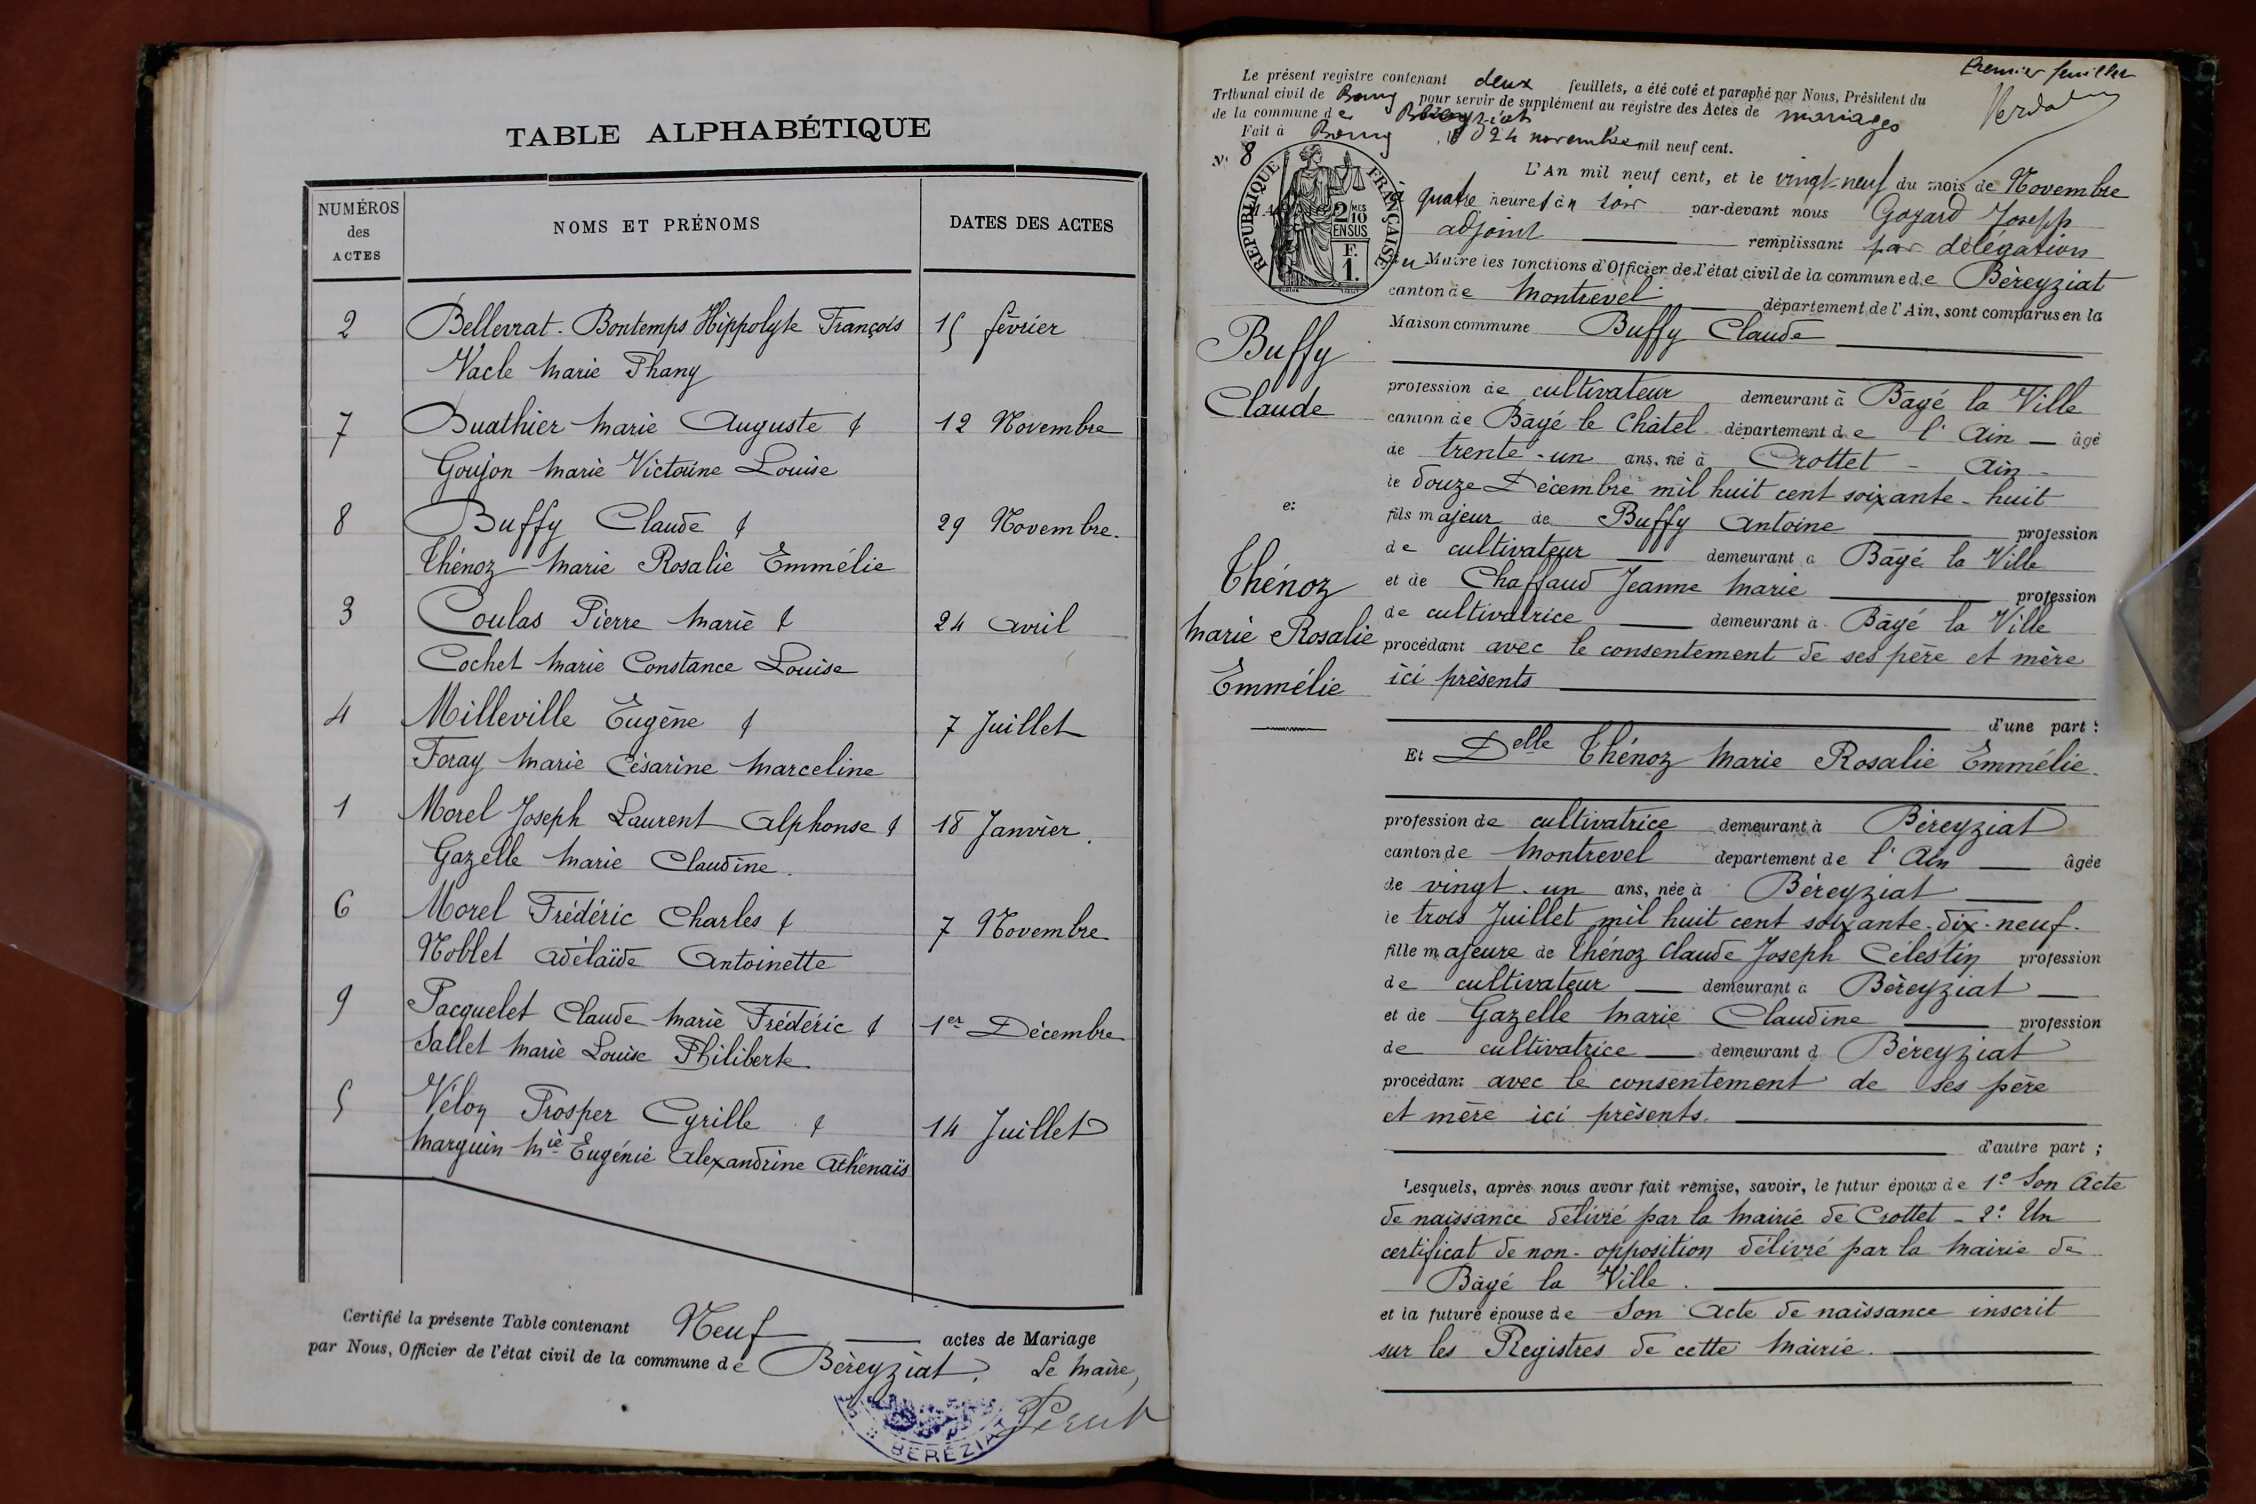 TABLE ALPHABÉTIQUE
NUMÉROS des ACTES
NOMS ET PRÉNOMS
DATES DES ACTES
2 Bellevrat-Bontemps Hippolyte François 15 février
Vacle Marie Phany
7 Buathier Marie Auguste & 12 Novembre
Goujon Marie Victorine Louise
8 Buffy Claude & 29 Novembre.
Thénoz Marie Rosalie Emmélie
3 Coulas Pierre Marie & 24 avril
Cochet Marie Constance Louise
4 Milleville Eugène & 7 Juillet
Foray Marie Césarine Marceline
1 Morel Joseph Laurent Alphonse & 18 Janvier.
Gazelle Marie Claudine.
6 Morel Frédéric Charles & 7 Novembre
Noblet Adélaïde Antoinette
9 Pacquelet Claude Marie Frédéric & 1er Décembre
Sallet Marie Louise Philiberte
5 Véloy Prosper Cyrille & 14 Juillet
Marguin Mie Eugénie Alexandrine Athénaïs
Certifié la présente Table contenant Neuf actes de Mariage
par Nous, Officier de l'état civil de la commune de Béreyziat. Le Maire,
BÉRÉZIAT
Premier feuillet
Le présent registre contenant deux feuillets, a été coté et paraphé par Nous, Président du
Tribunal civil de Bourg pour servir de supplément au registre des Actes de mariages
de la commune de Béreyziat
Fait à Bourg, le 24 novembre mil neuf cent.
N° 8
RÉPUBLIQUE FRANÇAISE
2 MES 10 EN SUS
F. 1.
L'An mil neuf cent, et le vingt-neuf du mois de Novembre
à quatre heures du soir par-devant nous Goyard Joseph
adjoint remplissant par délégation
du Maire les fonctions d'Officier de l'état civil de la commune de Béreyziat
canton de Montrevel département de l'Ain, sont comparus en la
Maison commune Buffy Claude
Buffy
Claude
et
Thénoz
Marie Rosalie
Emmélie
profession de cultivateur demeurant à Bâgé la Ville
canton de Bâgé le Châtel département de l'Ain âgé
de trente-un ans, né à Crottet - Ain -
le douze Décembre mil huit cent soixante-huit
fils majeur de Buffy Antoine profession
de cultivateur demeurant à Bâgé la Ville
et de Chaffaud Jeanne Marie profession
de cultivatrice demeurant à Bâgé la Ville
procédant avec le consentement de ses père et mère
ici présents
d'une part ;
Et Delle Thénoz Marie Rosalie Emmélie.
profession de cultivatrice demeurant à Béreyziat
canton de Montrevel département de l'Ain âgée
de vingt-un ans, née à Béreyziat
le trois Juillet mil huit cent soixante-dix-neuf.
fille majeure de Thénoz Claude Joseph Célestin profession
de cultivateur demeurant à Béreyziat
et de Gazelle Marie Claudine profession
de cultivatrice demeurant à Béreyziat
procédant avec le consentement de ses père
et mère ici présents.
d'autre part ;
Lesquels, après nous avoir fait remise, savoir, le futur époux de 1° Son Acte
de naissance délivré par la Mairie de Crottet - 2° Un
certificat de non-opposition délivré par la Mairie de
Bâgé la Ville.
et la future épouse de Son Acte de naissance inscrit
sur les Registres de cette Mairie.